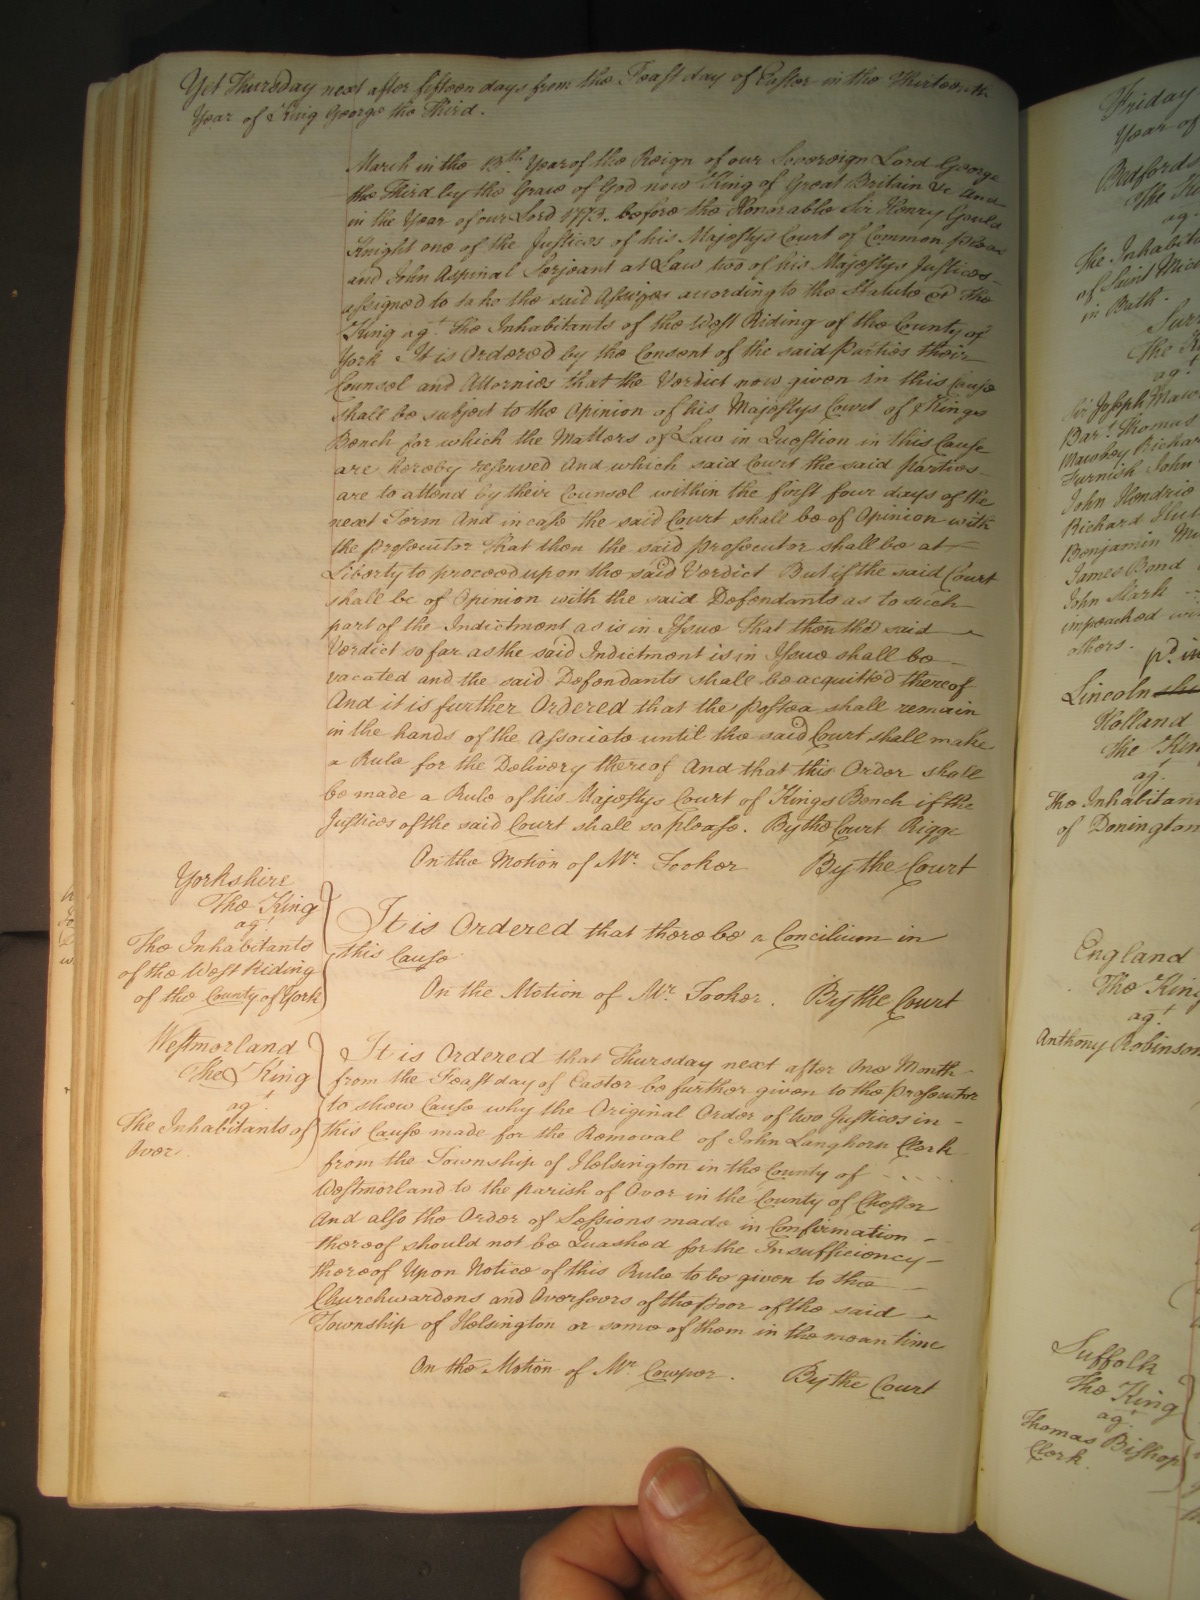 Yet Thursday next after fifteen days from the Feast day of Easter in the Thirteenth
Year of King George the Third.
March in the 13th. Year of the Reign of our Sovereign Lord George
the Third by the Grace of God now King of Great Britain &c And
in the Year of our Lord 1773. before the Honorable Sir Henry Gould
Knight one of the Justices of his Majestys Court of Common Pleas
and John Aspinal Serjeant at Law two of his Majestys Justices
assigned to take the said Assizes according to the Statute &c The
King agt. the Inhabitants of the West Riding of the County of
York It is Ordered by the Consent of the said Parties their
Counsel and Attornies that the Verdict now given in this Cause
shall be subject to the Opinion of his Majestys Court of Kings
Bench for which the Matters of Law in Question in this Cause
are hereby reserved And which said Court the said parties
are to attend by their Counsel within the first four days of the
next Term And in case the said Court shall be of Opinion with
the prosecutor That then the said prosecutor shall be at
Liberty to proceed upon the said Verdict But if the said Court
shall be of Opinion with the said Defendants as to such
part of the Indictment as is in Issue That then the said
Verdict so far as the said Indictment is in Issue shall be
vacated and the said Defendants shall be acquitted thereof
And it is further Ordered that the postea shall remain
in the hands of the Associate until the said Court shall make
a Rule for the Delivery thereof And that this Order shall
be made a Rule of his Majestys Court of Kings Bench if the
Justices of the said Court shall so please. By the Court Rigge
On the Motion of Mr. Tooker By the Court
Yorkshire
The King
agt
The Inhabitants
of the West Riding
of the County of York
It is Ordered that there be a Concilium in
this Cause
On the Motion of Mr. Tooker. By the Court
Westmorland
The King
agt.
The Inhabitants of
Over
It is Ordered that Thursday next after One Month
from the Feast day of Easter be further given to the prosecutor
to show Cause why the Original Order of two Justices in
this Cause made for the Removal of John Langhorn Clerk
from the Township of Helsington in the County of
Westmorland to the parish of Over in the County of Chester
And also the Order of Sessions made in Confirmation
thereof should not be Quashed for the Insufficiency
thereof Upon Notice of this Rule to be given to the
Churchwardens and Overseers of the poor of the said
Township of Helsington or some of them in the mean time
On the Motion of Mr. Cowper. By the Court
Friday
Year of
Bedfords
The
agt
The Inhabit
of Saint Mic
in Bath.
Surr
The
agt
Sir Joseph Maw
Bart. Thomas
Mawbey Richar
Furnish John
John Hendrie
Richard
Benjamin
James Bond
John Stark
impeached wi
others.
Lincoln
Holland
The Kin
agt.
The Inhabitan
of Donington
England
The King
agt.
Anthony Robinson
Suffolk
The King
agt.
Thomas Bishop
Clerk.